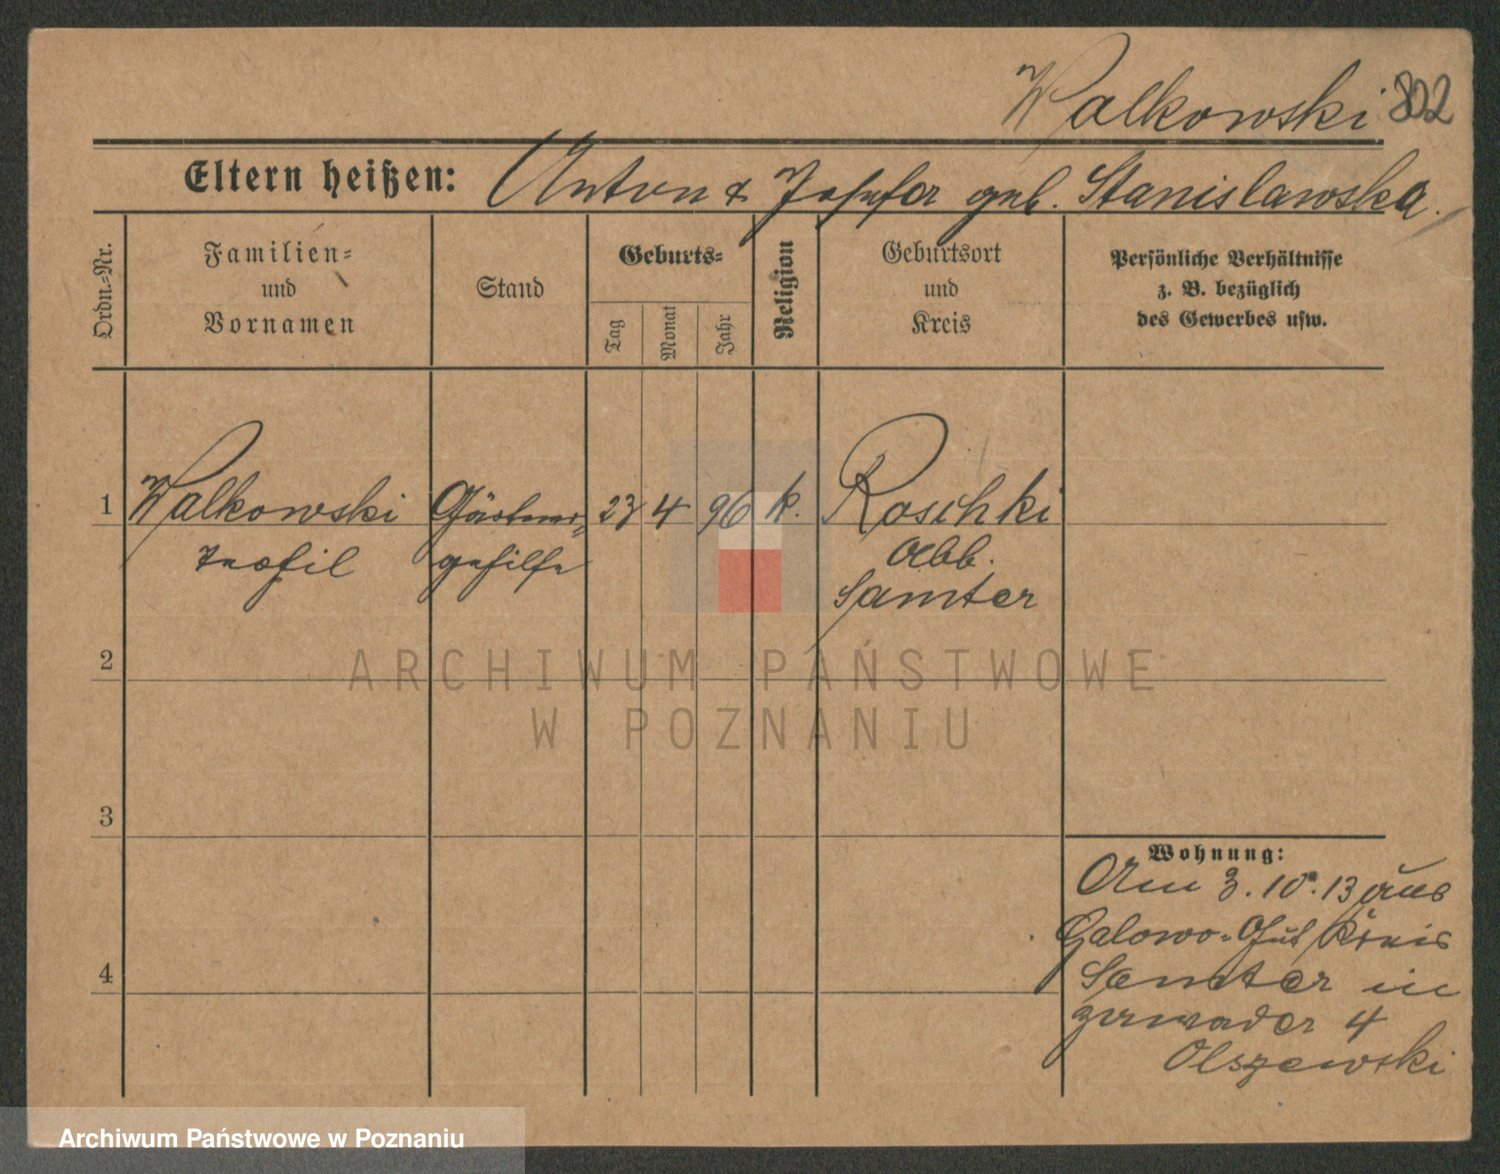 Walkowski 802
Eltern heißen: Anton & Josefa geb. Stanislawska.
Ordn.-Nr.
Familien-
und
Vornamen
Stand
Geburts-
Tag
Monat
Jahr
Religion
Geburtsort
und
Kreis
Persönliche Verhältnisse
z. B. bezüglich
des Gewerbes usw.
1 Walkowski Gärtner- 23 4 96 k. Roschki
Teofil gehilfe Abb.
Samter
2
3
4
Wohnung:
Am 3.10.13 aus
Galowo-Gut Kreis
Samter in
4
Olszewski
ARCHIWUM PAŃSTWOWE
W POZNANIU
Archiwum Państwowe w Poznaniu